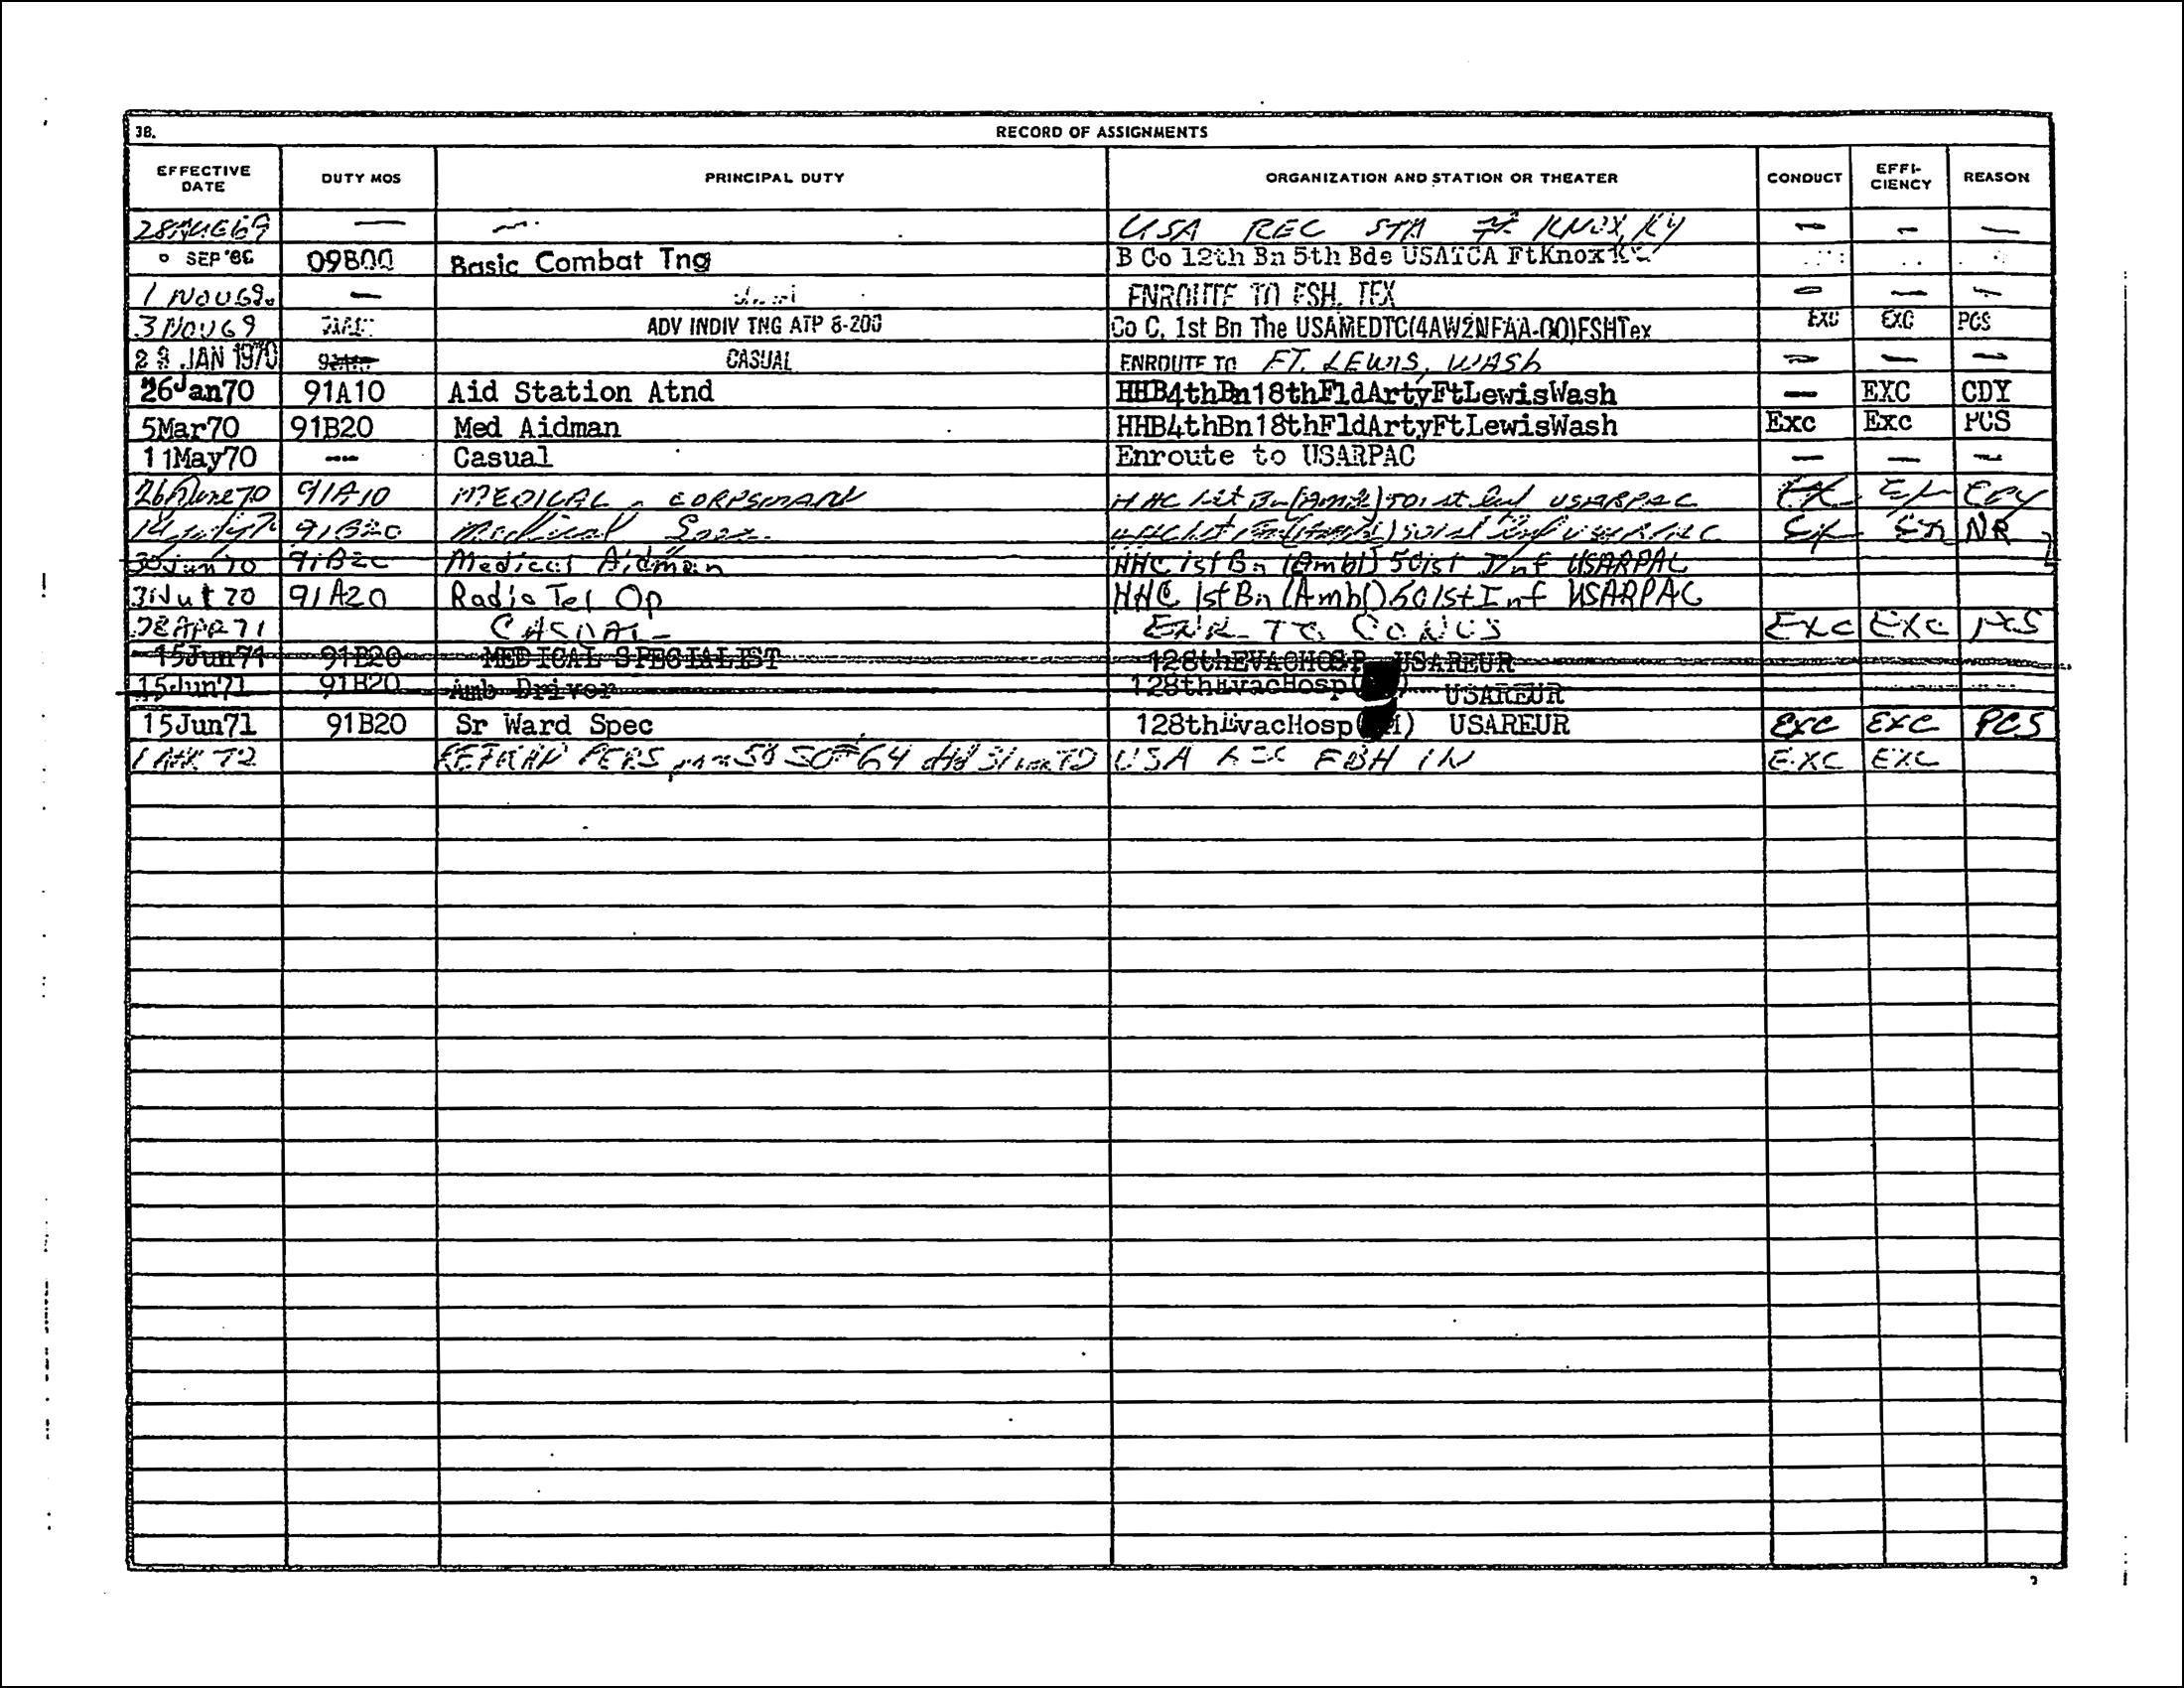 38. RECORD OF ASSIGNMENTS
EFFECTIVE DATE DUTY MOS PRINCIPAL DUTY ORGANIZATION AND STATION OR THEATER CONDUCT EFFI-CIENCY REASON
28AUG69 — — USA REC STA Ft KNOX, KY — — —
SEP 09B00 Basic Combat Tng B Co 12th Bn 5th Bde USATCA FtKnox
1 NOV 69 — ENROUTE TO FSH. TEX — — —
3 NOV 69 ADV INDIV TNG ATP 8-200 Co C, 1st Bn The USAMEDTC(4AW2NFAA-00)FSHTex EXC EXC PCS
JAN 1970 CASUAL ENROUTE TO FT. LEWIS, WASH — — —
26Jan70 91A10 Aid Station Atnd HHB4thBn18thFldArtyFtLewisWash — EXC CDY
5Mar70 91B20 Med Aidman HHB4thBn18thFldArtyFtLewisWash Exc Exc PCS
11May70 --- Casual Enroute to USARPAC — — —
26 June 70 91A10 MEDICAL CORPSMAN HHC 1st Bn (Ambl) 501st Inf USARPAC Ex Ex CDY
91B20 Medical Spec Ex Ex NR
30Jun70 91B20 Medical Aidman HHC 1st Bn (Ambl) 501st Inf USARPAC
31Jul70 91A20 Radio Tel Op HHC 1st Bn (Ambl) 501st Inf USARPAC
28 APR 71 CASUAL ENR TO CONUS EXC EXC PCS
15Jun71 91B20 MEDICAL SPECIALIST 128thEVACHOSP USAREUR
15Jun71 91B20 Amb Driver 128thEvacHosp( ) USAREUR
15Jun71 91B20 Sr Ward Spec 128thEvacHosp( ) USAREUR EXC EXC PCS
72 PERS SO#64 USA FBH IN EXC EXC